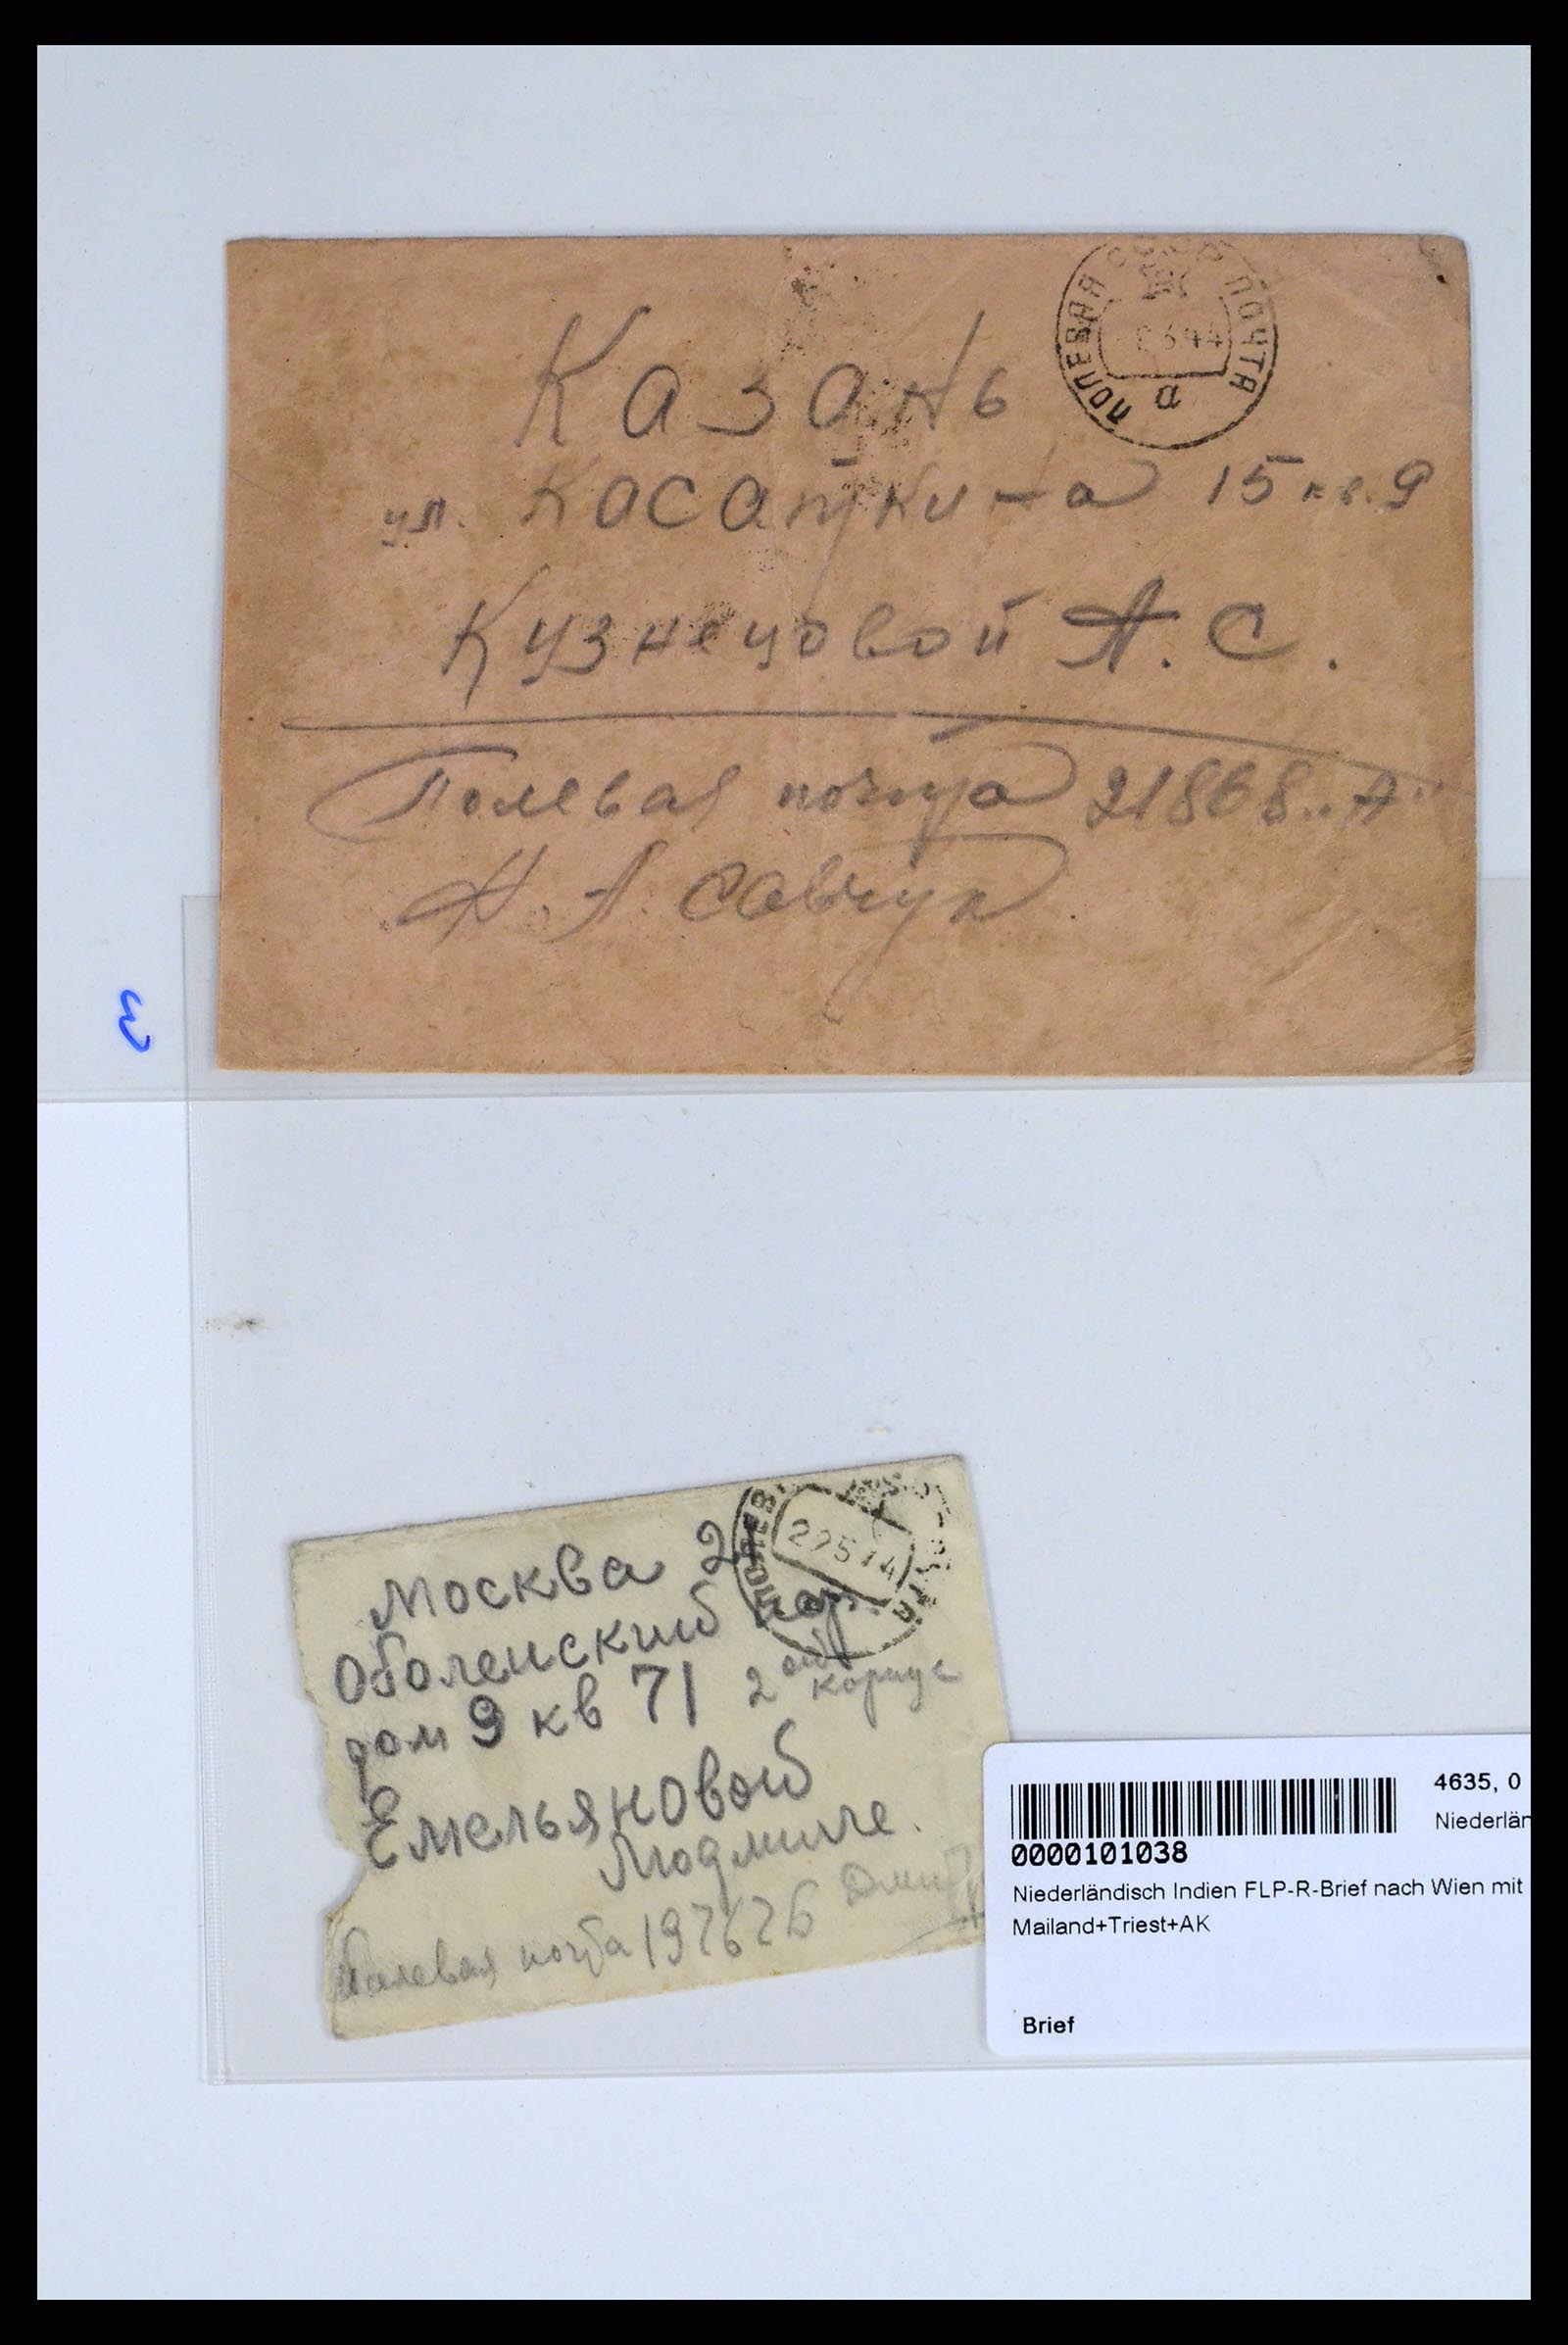 ПОЛЕВАЯ ПОЧТА
а
Казань
ул. Касаткина 15 кв. 9
Кузнецовой А. С.
Полевая почта 21868 „А"
Н. А. Савчук
3
Москва 21
Оболенский пер.
дом 9 кв 71 2ой корпус
Емельяновой
Людмиле.
Полевая почта
4635, 0
Niederlän
0000101038
Niederländisch Indien FLP-R-Brief nach Wien mit
Mailand+Triest+AK
Brief